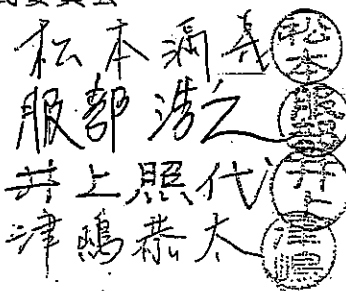 松本満喜 松本
服部浩之 服部
井上照代 井上
津嶋恭太 津嶋